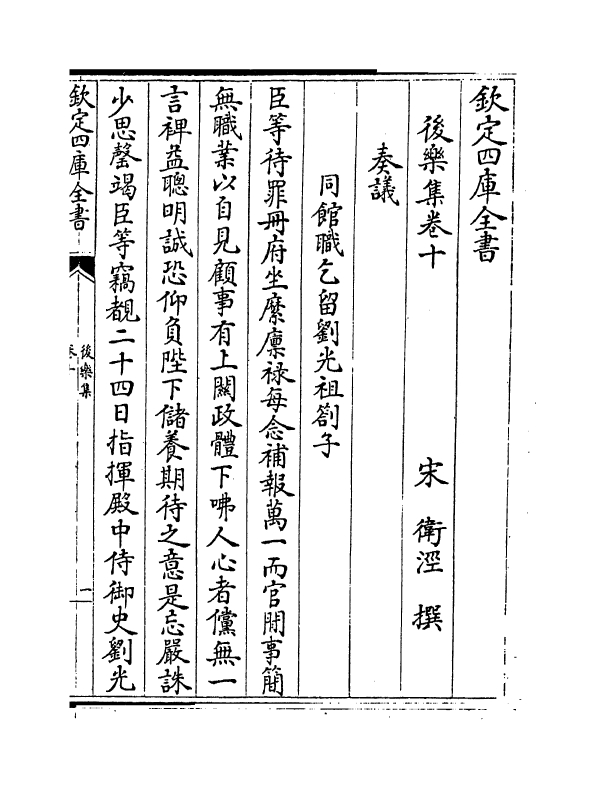 欽定四庫全書
後樂集卷十
宋 衛涇 撰
奏議
同館職乞留劉光祖劄子
臣等待罪冊府坐縻廩禄每念補報萬一而官閒事簡
無職業以自見顧事有上關政體下咈人心者儻無一
言裨益聰明誠恐仰負陛下儲養期待之意是忘嚴誅
少思罄竭臣等竊覩二十四日指揮殿中侍御史劉光
欽定四庫全書
後樂集
卷十
一